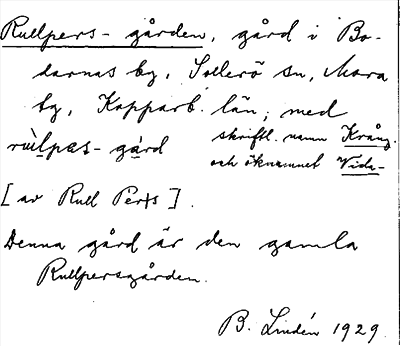 Rullpers-gården, gård i Bo-
darnas by, Sollerö sn, Mora
tg, Kopparb. län; med
skriftl. namn Krång.
rùlpæs-gård
och öknamnet Vida-
[av Rull Pers].
Denna gård är den gamla
Rullpersgården.
B. Lindén 1929.